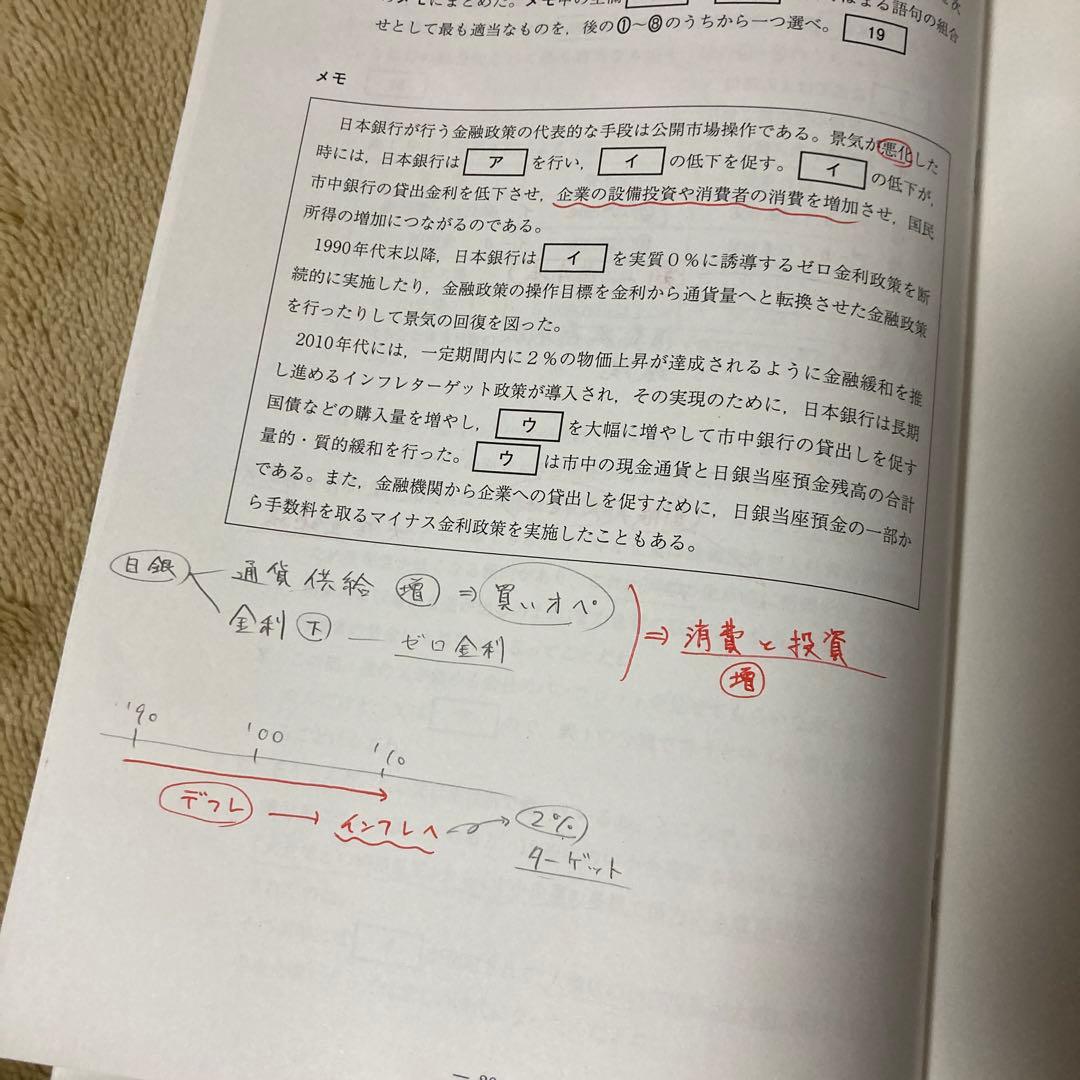 せとして最も適当なものを，後の①～⑧のうちから一つ選べ。 19
メモ
日本銀行が行う金融政策の代表的な手段は公開市場操作である。景気が悪化した
時には，日本銀行は ア を行い， イ の低下を促す。 イ の低下が，
市中銀行の貸出金利を低下させ，企業の設備投資や消費者の消費を増加させ，国民
所得の増加につながるのである。
1990年代末以降，日本銀行は イ を実質０％に誘導するゼロ金利政策を断
続的に実施したり，金融政策の操作目標を金利から通貨量へと転換させた金融政策
を行ったりして景気の回復を図った。
2010年代には，一定期間内に２％の物価上昇が達成されるように金融緩和を推
し進めるインフレターゲット政策が導入され，その実現のために，日本銀行は長期
国債などの購入量を増やし， ウ を大幅に増やして市中銀行の貸出しを促す
量的・質的緩和を行った。 ウ は市中の現金通貨と日銀当座預金残高の合計
である。また，金融機関から企業への貸出しを促すために，日銀当座預金の一部か
ら手数料を取るマイナス金利政策を実施したこともある。
日銀 通貨供給 増 ⇒ 買いオペ
金利 下 — ゼロ金利
⇒ 消費と投資
増
'90 '00 '10
デフレ → インフレへ → 2%
ターゲット